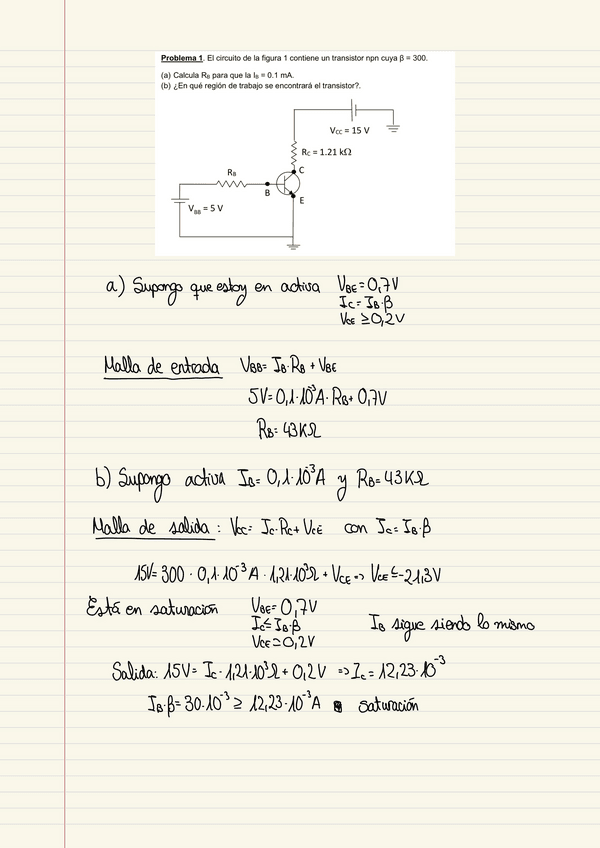 Problema 1. El circuito de la figura 1 contiene un transistor npn cuya β = 300.
(a) Calcula RB para que la IB = 0.1 mA.
(b) ¿En qué región de trabajo se encontrará el transistor?.
VCC = 15 V
RC = 1.21 kΩ
C
RB
B
E
VBB = 5 V
a) Supongo que estoy en activa VBE = 0,7V
IC = IB·β
VCE ≥ 0,2V
Malla de entrada VBB = IB·RB + VBE
5V = 0,1·10⁻³A·RB + 0,7V
RB = 43KΩ
b) Supongo activa IB = 0,1·10⁻³A y RB = 43KΩ
Malla de salida: VCC = IC·RC + VCE con IC = IB·β
15V = 300 · 0,1·10⁻³A · 1,21·10³Ω + VCE => VCE = -21,3V
Está en saturación VBE = 0,7V
IC ≤ IB·β
VCE = 0,2V
IB sigue siendo lo mismo
Salida: 15V = IC·1,21·10³Ω + 0,2V => IC = 12,23·10⁻³
IB·β = 30·10⁻³ ≥ 12,23·10⁻³A saturación